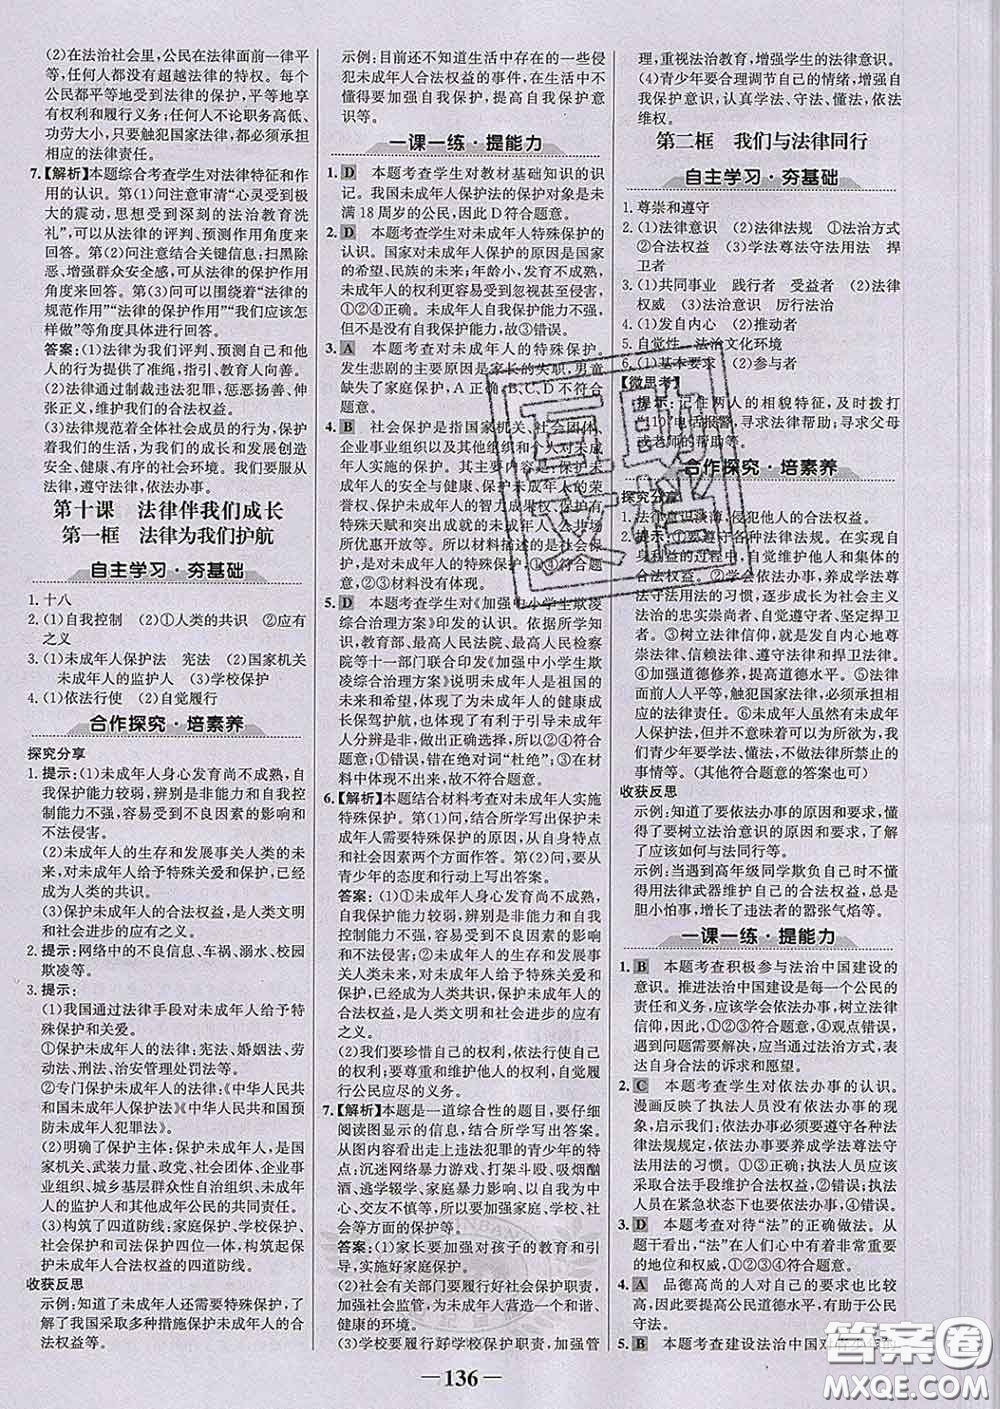 (2)在法治社会里,公民在法律面前一律平
等,任何人都没有超越法律的特权。每个
公民都平等地受到法律的保护,平等地享
有权利和履行义务;任何人不论职务高低、
功劳大小,只要触犯国家法律,都必须承担
相应的法律责任。
7.【解析】本题综合考查学生对法律特征和作
用的认识。第(1)问注意审清“心灵受到极
大的震动,思想受到深刻的法治教育洗
礼”,可以从法律的评判、预测作用角度来
回答。第(2)问注意结合关键信息;扫黑除
恶、增强群众安全感,可从法律的保护作用
角度来回答。第(3)问可以围绕着“法律的
规范作用”“法律的保护作用”“我们应该
怎样做”等角度具体进行回答。
答案:(1)法律为我们评判、预测自己和他
人的行为提供了准绳,指引、教育人向善。
(2)法律通过制裁违法犯罪,惩恶扬善、伸
张正义,维护我们的合法权益。
(3)法律规范着全体社会成员的行为,保护
着我们的生活,为我们的成长和发展创造
安全、健康、有序的社会环境。我们要服从
法律,遵守法律,依法办事。
第十课 法律伴我们成长
第一框 法律为我们护航
自主学习·夯基础
1. 十八
2. (1)自我控制 (2)①人类的共识 ②应有
之义
3. (1)未成年人保护法 宪法 (2)国家机关
未成年人的监护人 (3)学校保护
4. (1)依法行使 (2)自觉履行
合作探究·培素养
探究分享
1. 提示:(1)未成年人身心发育尚不成熟,自
我保护能力较弱,辨别是非能力和自我控
制能力不强,容易受到不良因素的影响和
不法侵害。
(2)未成年人的生存和发展事关人类的未
来,对未成年人给予特殊关爱和保护,已经
成为人类的共识。
(3)保护未成年人的合法权益,是人类文明
和社会进步的应有之义。
2. 提示:网络中的不良信息、车祸、溺水、校园
欺凌等。
3. 提示:
(1)我国通过法律手段对未成年人给予特
殊保护和关爱。
①保护未成年人的法律:宪法、婚姻法、劳
动法、刑法、治安管理处罚法等。
②专门保护未成年人的法律:《中华人民共
和国未成年人保护法》《中华人民共和国预
防未成年人犯罪法》。
(2)明确了保护主体:保护未成年人,是国
家机关、武装力量、政党、社会团体、企业事
业组织、城乡基层群众性自治组织、未成年
人的监护人和其他成年公民的共同责任。
(3)构筑了四道防线:家庭保护、学校保护、
社会保护和司法保护四位一体,构筑起保
护未成年人合法权益的四道防线。
收获反思
示例:知道了未成年人还需要特殊保护,了
解了我国采取多种措施保护未成年人的合
法权益等。
示例:目前还不知道生活中存在的一些侵
犯未成年人合法权益的事件,在生活中还
不懂得要加强自我保护,提高自我保护意
识等。
一课一练·提能力
1. D 本题考查学生对教材基础知识的识
记。我国未成年人保护法的保护对象是未
满 18 周岁的公民,因此 D 符合题意。
2. D 本题考查学生对未成年人特殊保护的
认识。国家对未成年人保护的原因是国家
的希望、民族的未来;年龄小,发育不成熟,
未成年人的权利更容易受到忽视甚至侵
害,①②④正确。未成年人自我保护能力不强,
但不是没有自我保护能力,故③错误。
3. A 本题考查对未成年人的特殊保护。
发生悲剧的主要原因是家长的失职,男童
缺失了家庭保护,A 正确;B、C、D 不符合
题意。
4. B 社会保护是指国家机关、社会团体、
企业事业组织以及其他组织和个人对未成
年人实施的保护。尊重未成年人的荣
誉权,保护未成年人的智力成果,保护有
特殊天赋和突出成就的未成年人,公共场
所优惠开放等,都是社会保护的措施。①④是社会保
护,是对社会保护的落实,①④符合题意,
故选 B;②③材料没有体现。
5. D 本题考查学生对《加强中小学生欺凌
综合治理方案》印发的认识。依据所学知
识,教育部、最高人民法院、最高人民检察
院等十一部门联合印发《加强中小学生欺
凌综合治理方案》说明未成年人的健康成
长关系到祖国的未来和民族的希望,为未
成年人成长保驾护航,有利于引导未成年
人分辨是非,预防违法犯罪,所以②④正
确;①太片面,错误,在于绝对词“杜绝”;③
在材料中不能体现,不符合题意。
6.【解析】本题结合材料考查对未成年人实施
特殊保护。第(1)问,结合所学写出保护未
成年人需要特殊保护的原因,从自身特点
和社会因素两个方面作答。第(2)问,要从
青少年的态度和行动上写出答案。
答案:(1)①未成年人身心发育尚不成熟,
自我保护能力较弱,辨别是非能力和自我
控制能力不强,容易受到不良因素的影响
和不法侵害。②未成年人的生存和发展事
关人类的未来,对未成年人给予特殊关爱
和保护,已经成为人类的共识。③保护未成年人的合
法权益,是人类文明和社会进步的应有
之义。
(2)我们要珍惜自己的权利,依法行使自己
的权利,尊重和维护他人权利,自觉履行
公民应尽的义务。
7.【解析】本题是一道综合性的题目,要仔细
阅读图显示的信息,结合所学写出答案。
从图内容看出走上违法犯罪的青少年的特
点;沉迷网络暴力游戏、打架斗殴、吸烟酗
酒、逃学辍学、家庭暴力影响、以自我为中
心、交友不慎等,所以要加强家庭、学校、社
会等方面的保护等。
答案:(1)家长要加强对孩子的教育和引
导,实施好家庭保护。
(2)社会有关部门要履行好社会保护职责,
加强社会监管,为未成年人营造一个和谐、
健康的环境。
(3)学校要履行好学校保护职责,加强管
理,重视法治教育,增强学生的法律意识。
(4)青少年要合理调节自己的情绪,增强自
我保护意识,认真学法、守法、懂法,依法
维权。
第二框 我们与法律同行
自主学习·夯基础
1. 尊崇和遵守
2. (1)法律意识 (2)法律法规 ①法治方式
②合法权益 (3)学法尊法守法用法 捍
卫者
3. (1)共同事业 践行者 受益者 (2)法律
权威 (3)法治意识 厉行法治
4. (1)发自内心 (2)推动者
5. 自觉性 法治文化环境
6. (1)基本要求 (2)参与者
【微思考】
提示:记住两人的相貌特征,及时拨打
110 电话报警,寻求法律帮助;寻求父母
或老师的帮助等。
合作探究·培素养
探究分享
1. 法律意识淡薄,侵犯他人的合法权益。
2. ①要遵守各种法律法规。在实现自
身利益的过程中,自觉维护他人和集体的
合法权益。②要依法办事,养成学法尊法
守法用法的习惯,逐步成长为社会主义法
治的忠实崇尚者、自觉遵守者、坚定捍卫者。
③要树立法律信仰,就是发自内心地尊
崇法律、信赖法律、遵守法律和捍卫法律。
④加强道德修养,提高道德水平。⑤法律
面前人人平等,触犯国家法律的行为都要
受到法律制裁。⑥未成年人虽然有未成年人保
护法保护,但并不意味着可以为所欲为,我
们青少年要学法、懂法,不做法律所禁止的
事情等。(其他符合题意的答案也可)
收获反思
示例:知道了要依法办事的原因和要求,懂
得了要树立法治意识的原因和要求,了解
了应该如何与法同行等。
示例:当遇到高年级同学欺负自己时不懂
得用法律武器维护自己的合法权益,总是
胆小怕事,增长了违法者的嚣张气焰等。
一课一练·提能力
1. B 本题考查积极参与法治中国建设的
意识。推进法治中国建设是每一个公民的
责任和义务,应该学会依法办事,树立法律
信仰,因此,①②③符合题意,④观点错误,
遇到问题需要解决,应通过法治方式,表
达自身合法的诉求和愿望。
2. C 本题考查学生对依法办事的认识。
漫画反映了执法人员没有依法办事的现
象,启示我们:依法办事必须要遵守各种法
律法规规定,依法办事要养成学法尊法守
法用法的习惯。①③正确;执法人员应该
采取合法手段维护合法权益,②错误;执法
人员在紧急状态下也要依法办事,④错误。
3. D 本题考查对待“法”的正确做法。从
题干看出,“法”在人们生活中具有非常重
要的地位和权力,因此 D 符合题意。
4. A 品德高尚的人对自己的要求也比较
高,因此要提高公民道德水平,有助于公民
守法。
5. B 本题考查建设法治中国
互助文档
答案圈
MXQE.COM
136